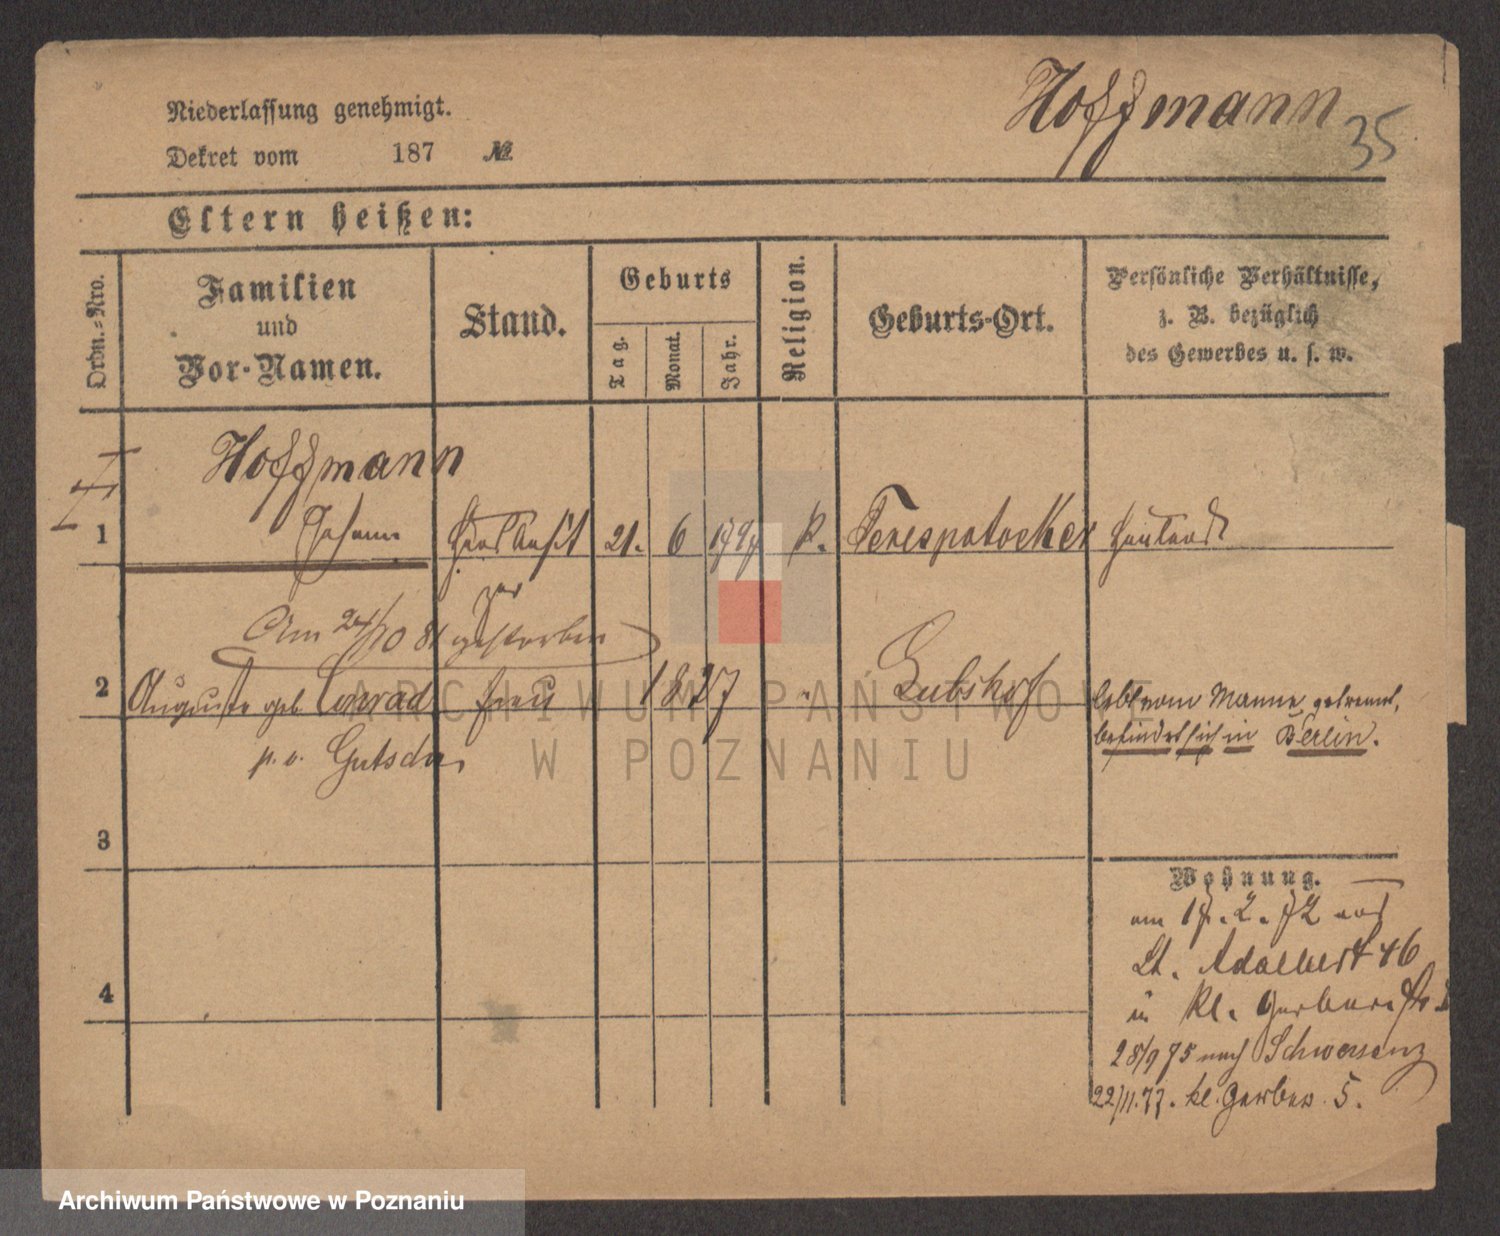 Hoffmann 35
Niederlassung genehmigt.
Dekret vom 187 №
Eltern heißen:
Ordn.-Nro.
Familien
und
Vor-Namen.
Stand.
Geburts
Tag.
Monat.
Jahr.
Religion.
Geburts-Ort.
Persönliche Verhältnisse,
z. B. bezüglich
des Gewerbes u. s. w.
Hoffmann
1 Johann 21. 6 K. Terespotocker
Am 24/10 81 gestorben
2 Auguste geb Conrad Frau 1827 " lebt vom Manne getrennt,
befindet sich in Berlin.
p. v. Gutsche
3
Wohnung.
am 17. 2. 72 aus
St. Adalbert 46
in kl. Gerberstr
4
28/9 75 nach Schwersenz
22/11. 77. kl. Gerber 5.
ARCHIWUM PAŃSTWOWE
W POZNANIU
Archiwum Państwowe w Poznaniu